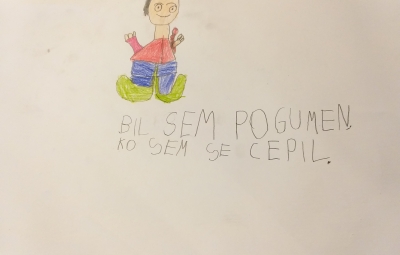 BIL SEM POGUMEN,
KO SEM SE CEPIL.